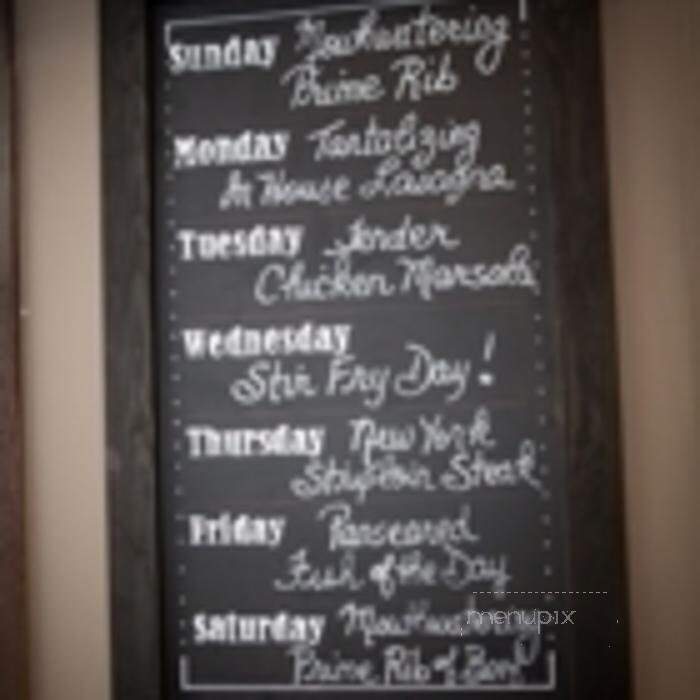 Sunday Mouthwatering
Prime Rib
Monday Tantalizing
In House Lasagna
Tuesday Tender
Chicken Marsala
Wednesday
Stir Fry Day!
Thursday New York
Striploin Steak
Friday Panseared
Fish of the Day
Saturday Mouthwatering
menupix
Prime Rib of Beef